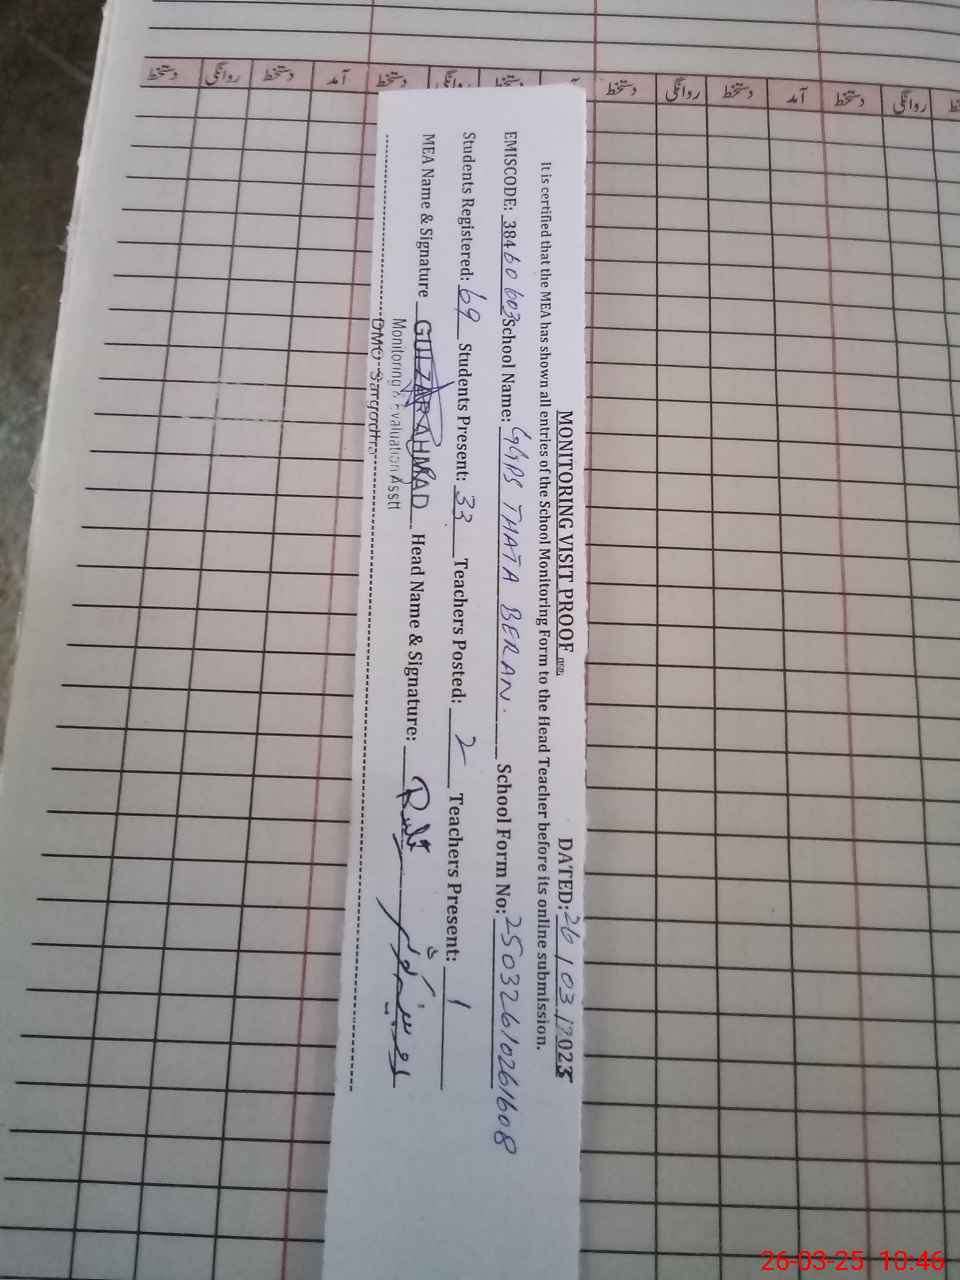 دستخط روانگی دستخط آمد دستخط روانگی دستخط دستخط روانگی دستخط آمد دستخط روانگی
MONITORING VISIT PROOF DATED: 26/03/2025
It is certified that the MEA has shown all entries of the School Monitoring Form to the Head Teacher before its online submission.
EMISCODE: 38460603 School Name: GGPS THATA BERAN. School Form No: 25032610261608
Students Registered: 69 Students Present: 33 Teachers Posted: 2 Teachers Present: 1
MEA Name & Signature GULZAR AHMAD Head Name & Signature:
Monitoring & Evaluation Asstt
DMO Sargodha
26-03-25 10:46